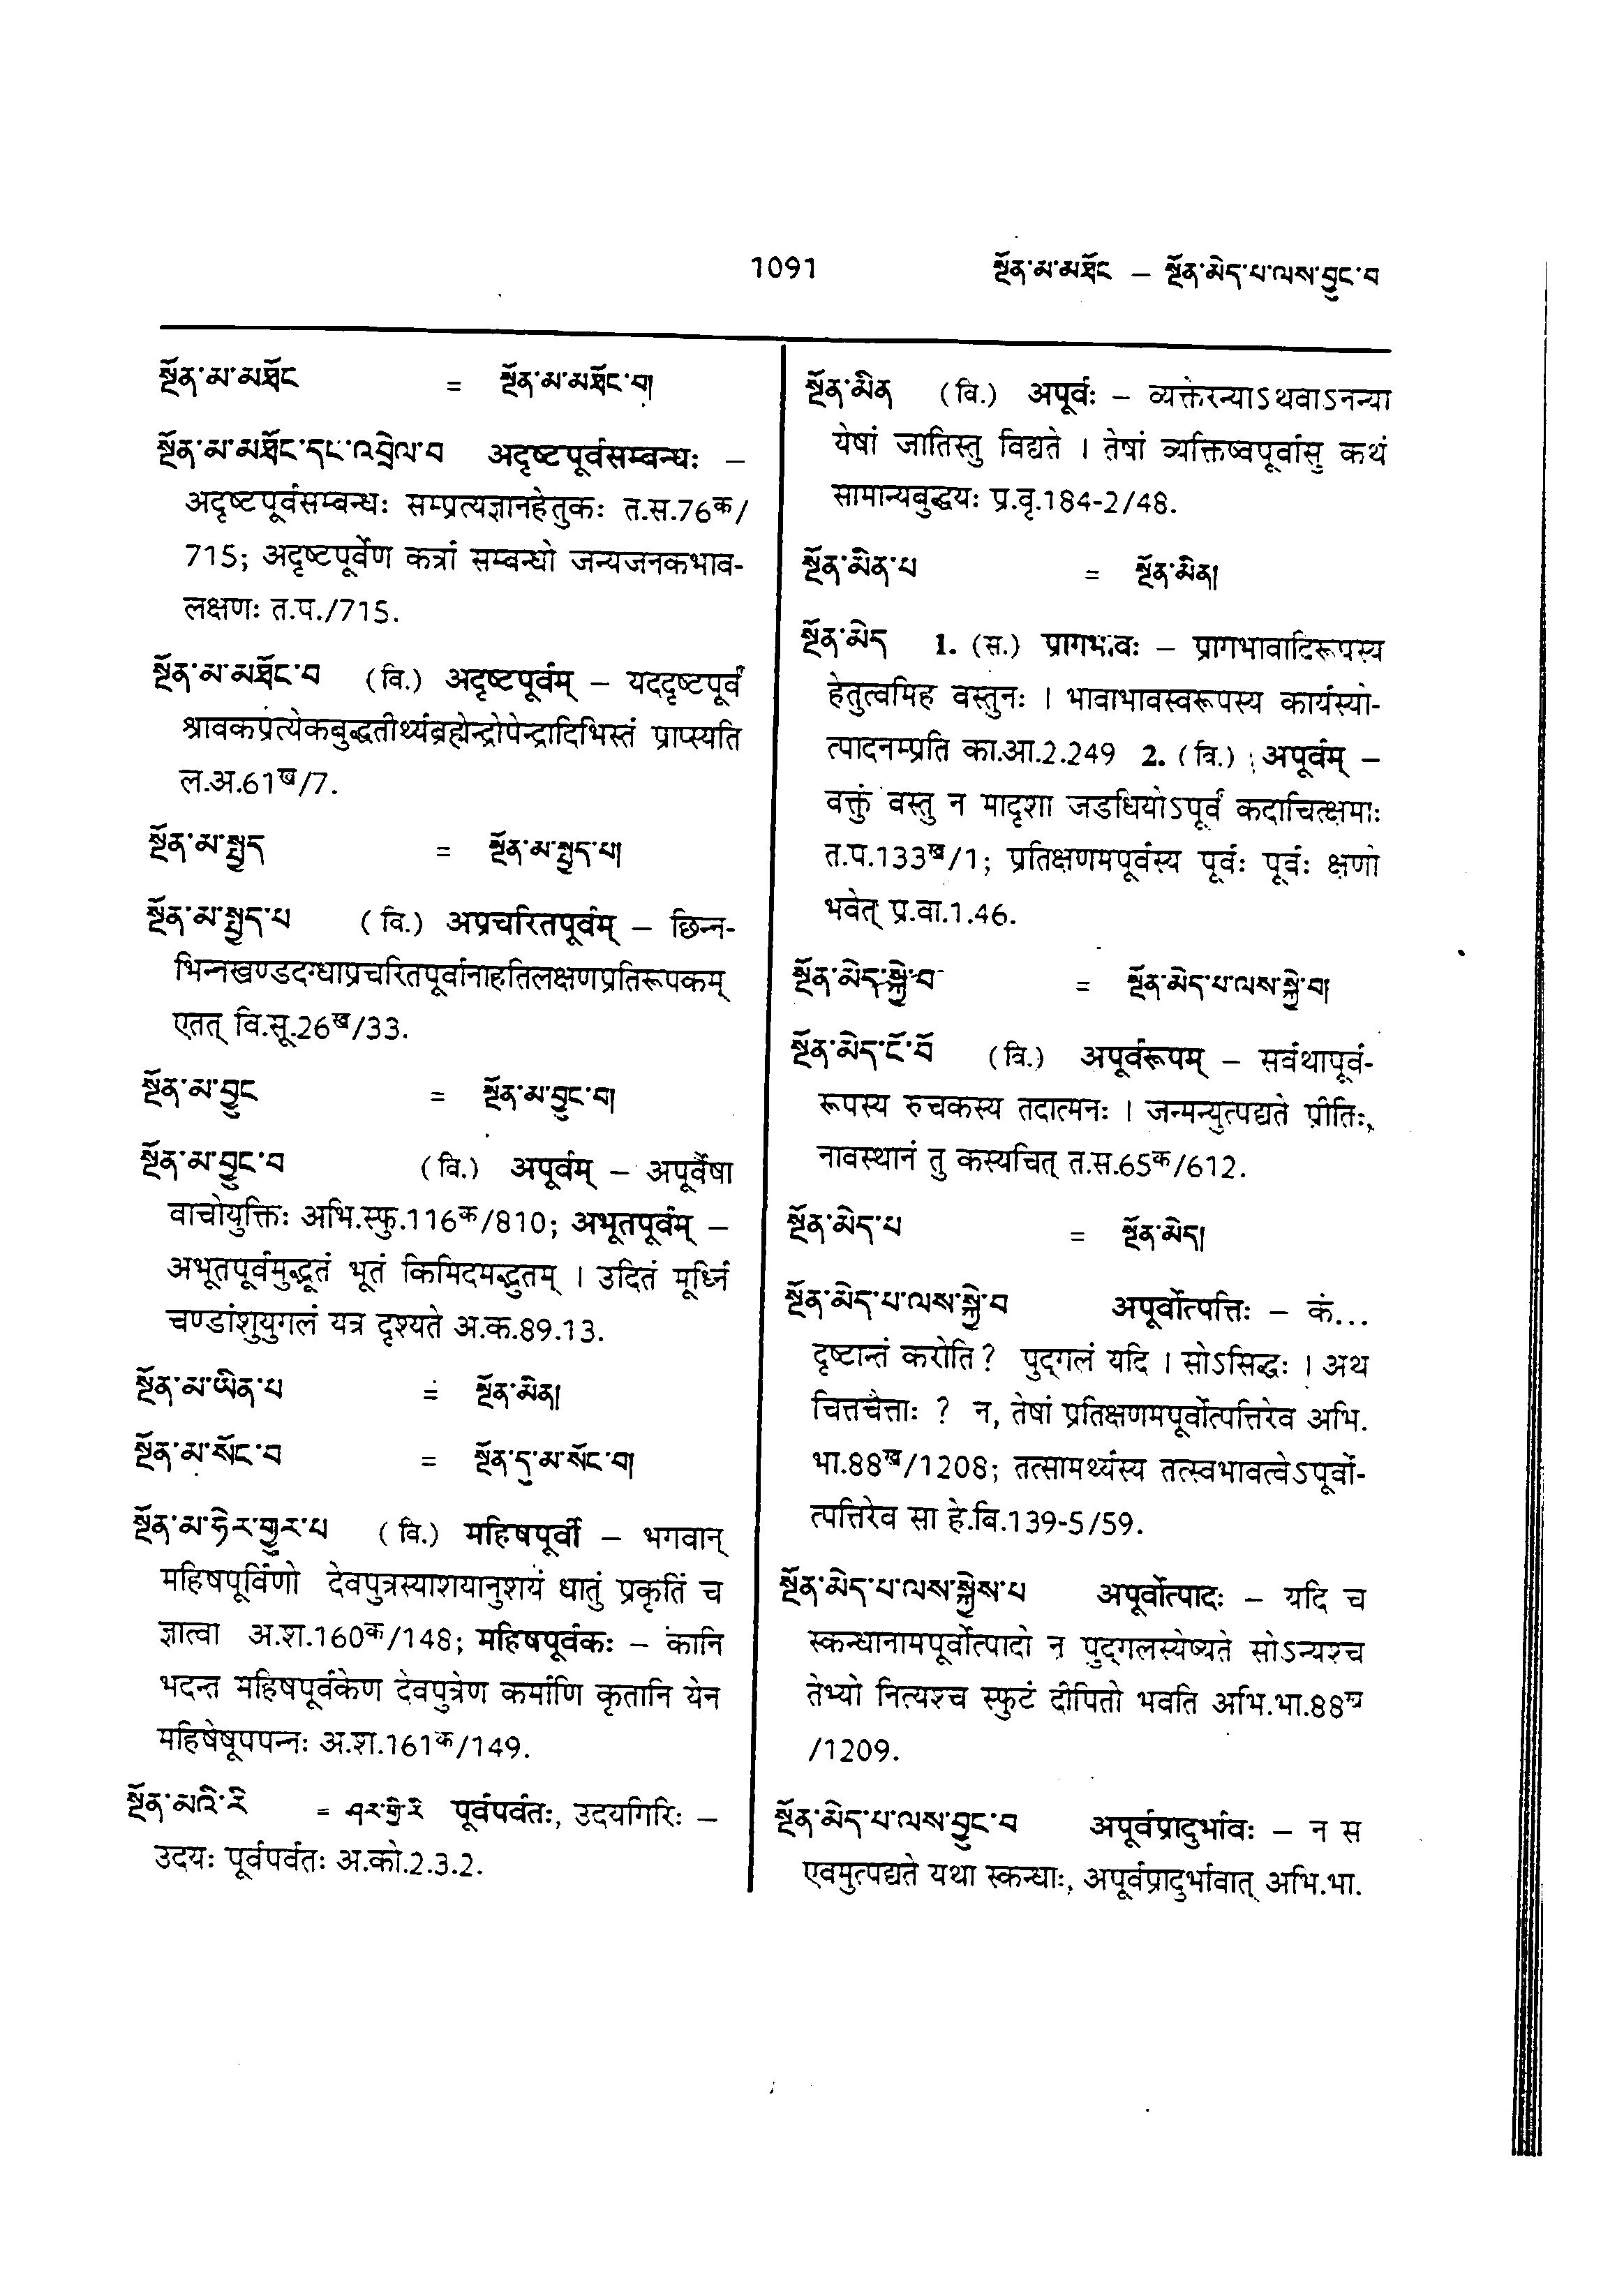 1091 སྔོན་མ་མཐོང – སྔོན་མེད་པ་ལས་བྱུང་བ
སྔོན་མ་མཐོང = སྔོན་མ་མཐོང་བ།
སྔོན་མ་མཐོང་དང་འབྲེལ་བ अदृष्टपूर्वसम्बन्धः –
अदृष्टपूर्वसम्बन्धः सम्प्रत्यज्ञानहेतुकः त.स.76क/
715; अदृष्टपूर्वेण कत्रां सम्बन्धो जन्यजनकभाव-
लक्षणः त.प./715.
སྔོན་མ་མཐོང་བ (वि.) अदृष्टपूर्वम् – यददृष्टपूर्वं
श्रावकप्रत्येकबुद्धतीर्थ्यब्रह्मेन्द्रोपेन्द्रादिभिस्तं प्राप्स्यति
ल.अ.61ख/7.
སྔོན་མ་སྤྱད = སྔོན་མ་སྤྱད་པ།
སྔོན་མ་སྤྱད་པ (वि.) अप्रचरितपूर्वम् – छिन्न-
भिन्नखण्डदग्धाप्रचरितपूर्वानाहतिलक्षणप्रतिरूपकम्
एतत् वि.सू.26ख/33.
སྔོན་མ་བྱུང = སྔོན་མ་བྱུང་བ།
སྔོན་མ་བྱུང་བ (वि.) अपूर्वम् – अपूर्वैषा
वाचोयुक्तिः अभि.स्फु.116क/810; अभूतपूर्वम् –
अभूतपूर्वमुद्भूतं भूतं किमिदमद्भुतम् । उदितं मूर्ध्नि
चण्डांशुयुगलं यत्र दृश्यते अ.क.89.13.
སྔོན་མ་ཡིན་པ = སྔོན་མིན།
སྔོན་མ་སོང་བ = སྔོན་དུ་མ་སོང་བ།
སྔོན་མ་ཧེར་གྱུར་པ (वि.) महिषपूर्वी – भगवान्
महिषपूर्विणो देवपुत्रस्याशयानुशयं धातुं प्रकृतिं च
ज्ञात्वा अ.श.160क/148; महिषपूर्वकः – कानि
भदन्त महिषपूर्वकेण देवपुत्रेण कर्माणि कृतानि येन
महिषेषूपपन्नः अ.श.161क/149.
སྔོན་མའི་རི = ཤར་གྱི་རི पूर्वपर्वतः, उदयगिरिः –
उदयः पूर्वपर्वतः अ.को.2.3.2.
སྔོན་མིན (वि.) अपूर्वः – व्यक्तेरन्याऽथवाऽनन्या
येषां जातिस्तु विद्यते । तेषां व्यक्तिष्वपूर्वासु कथं
सामान्यबुद्धयः प्र.वृ.184-2/48.
སྔོན་མིན་པ = སྔོན་མིན།
སྔོན་མེད 1. (स.) प्रागभावः – प्रागभावादिरूपस्य
हेतुत्वमिह वस्तुनः । भावाभावस्वरूपस्य कार्यस्यो-
त्पादनम्प्रति का.आ.2.249 2. (वि.) अपूर्वम् –
वक्तुं वस्तु न मादृशा जडधियोऽपूर्वं कदाचित्क्षमाः
त.प.133ख/1; प्रतिक्षणमपूर्वस्य पूर्वः पूर्वः क्षणो
भवेत् प्र.वा.1.46.
སྔོན་མེད་སྐྱེ་བ = སྔོན་མེད་པ་ལས་སྐྱེ་བ།
སྔོན་མེད་ངོ་བོ (वि.) अपूर्वरूपम् – सर्वथापूर्व-
रूपस्य रुचकस्य तदात्मनः । जन्मन्युत्पद्यते प्रीतिः,
नावस्थानं तु कस्यचित् त.स.65क/612.
སྔོན་མེད་པ = སྔོན་མེད།
སྔོན་མེད་པ་ལས་སྐྱེ་བ अपूर्वोत्पत्तिः – कं...
दृष्टान्तं करोति? पुद्गलं यदि । सोऽसिद्धः । अथ
चित्तचैत्ताः ? न, तेषां प्रतिक्षणमपूर्वोत्पत्तिरेव अभि.
भा.88ख/1208; तत्सामर्थ्यस्य तत्स्वभावत्वेऽपूर्वो-
त्पत्तिरेव सा हे.बि.139-5/59.
སྔོན་མེད་པ་ལས་སྐྱེས་པ अपूर्वोत्पादः – यदि च
स्कन्धानामपूर्वोत्पादो न पुद्गलस्येष्यते सोऽन्यश्च
तेभ्यो नित्यश्च स्फुटं दीपितो भवति अभि.भा.88ख
/1209.
སྔོན་མེད་པ་ལས་བྱུང་བ अपूर्वप्रादुर्भावः – न स
एवमुत्पद्यते यथा स्कन्धाः, अपूर्वप्रादुर्भावात् अभि.भा.